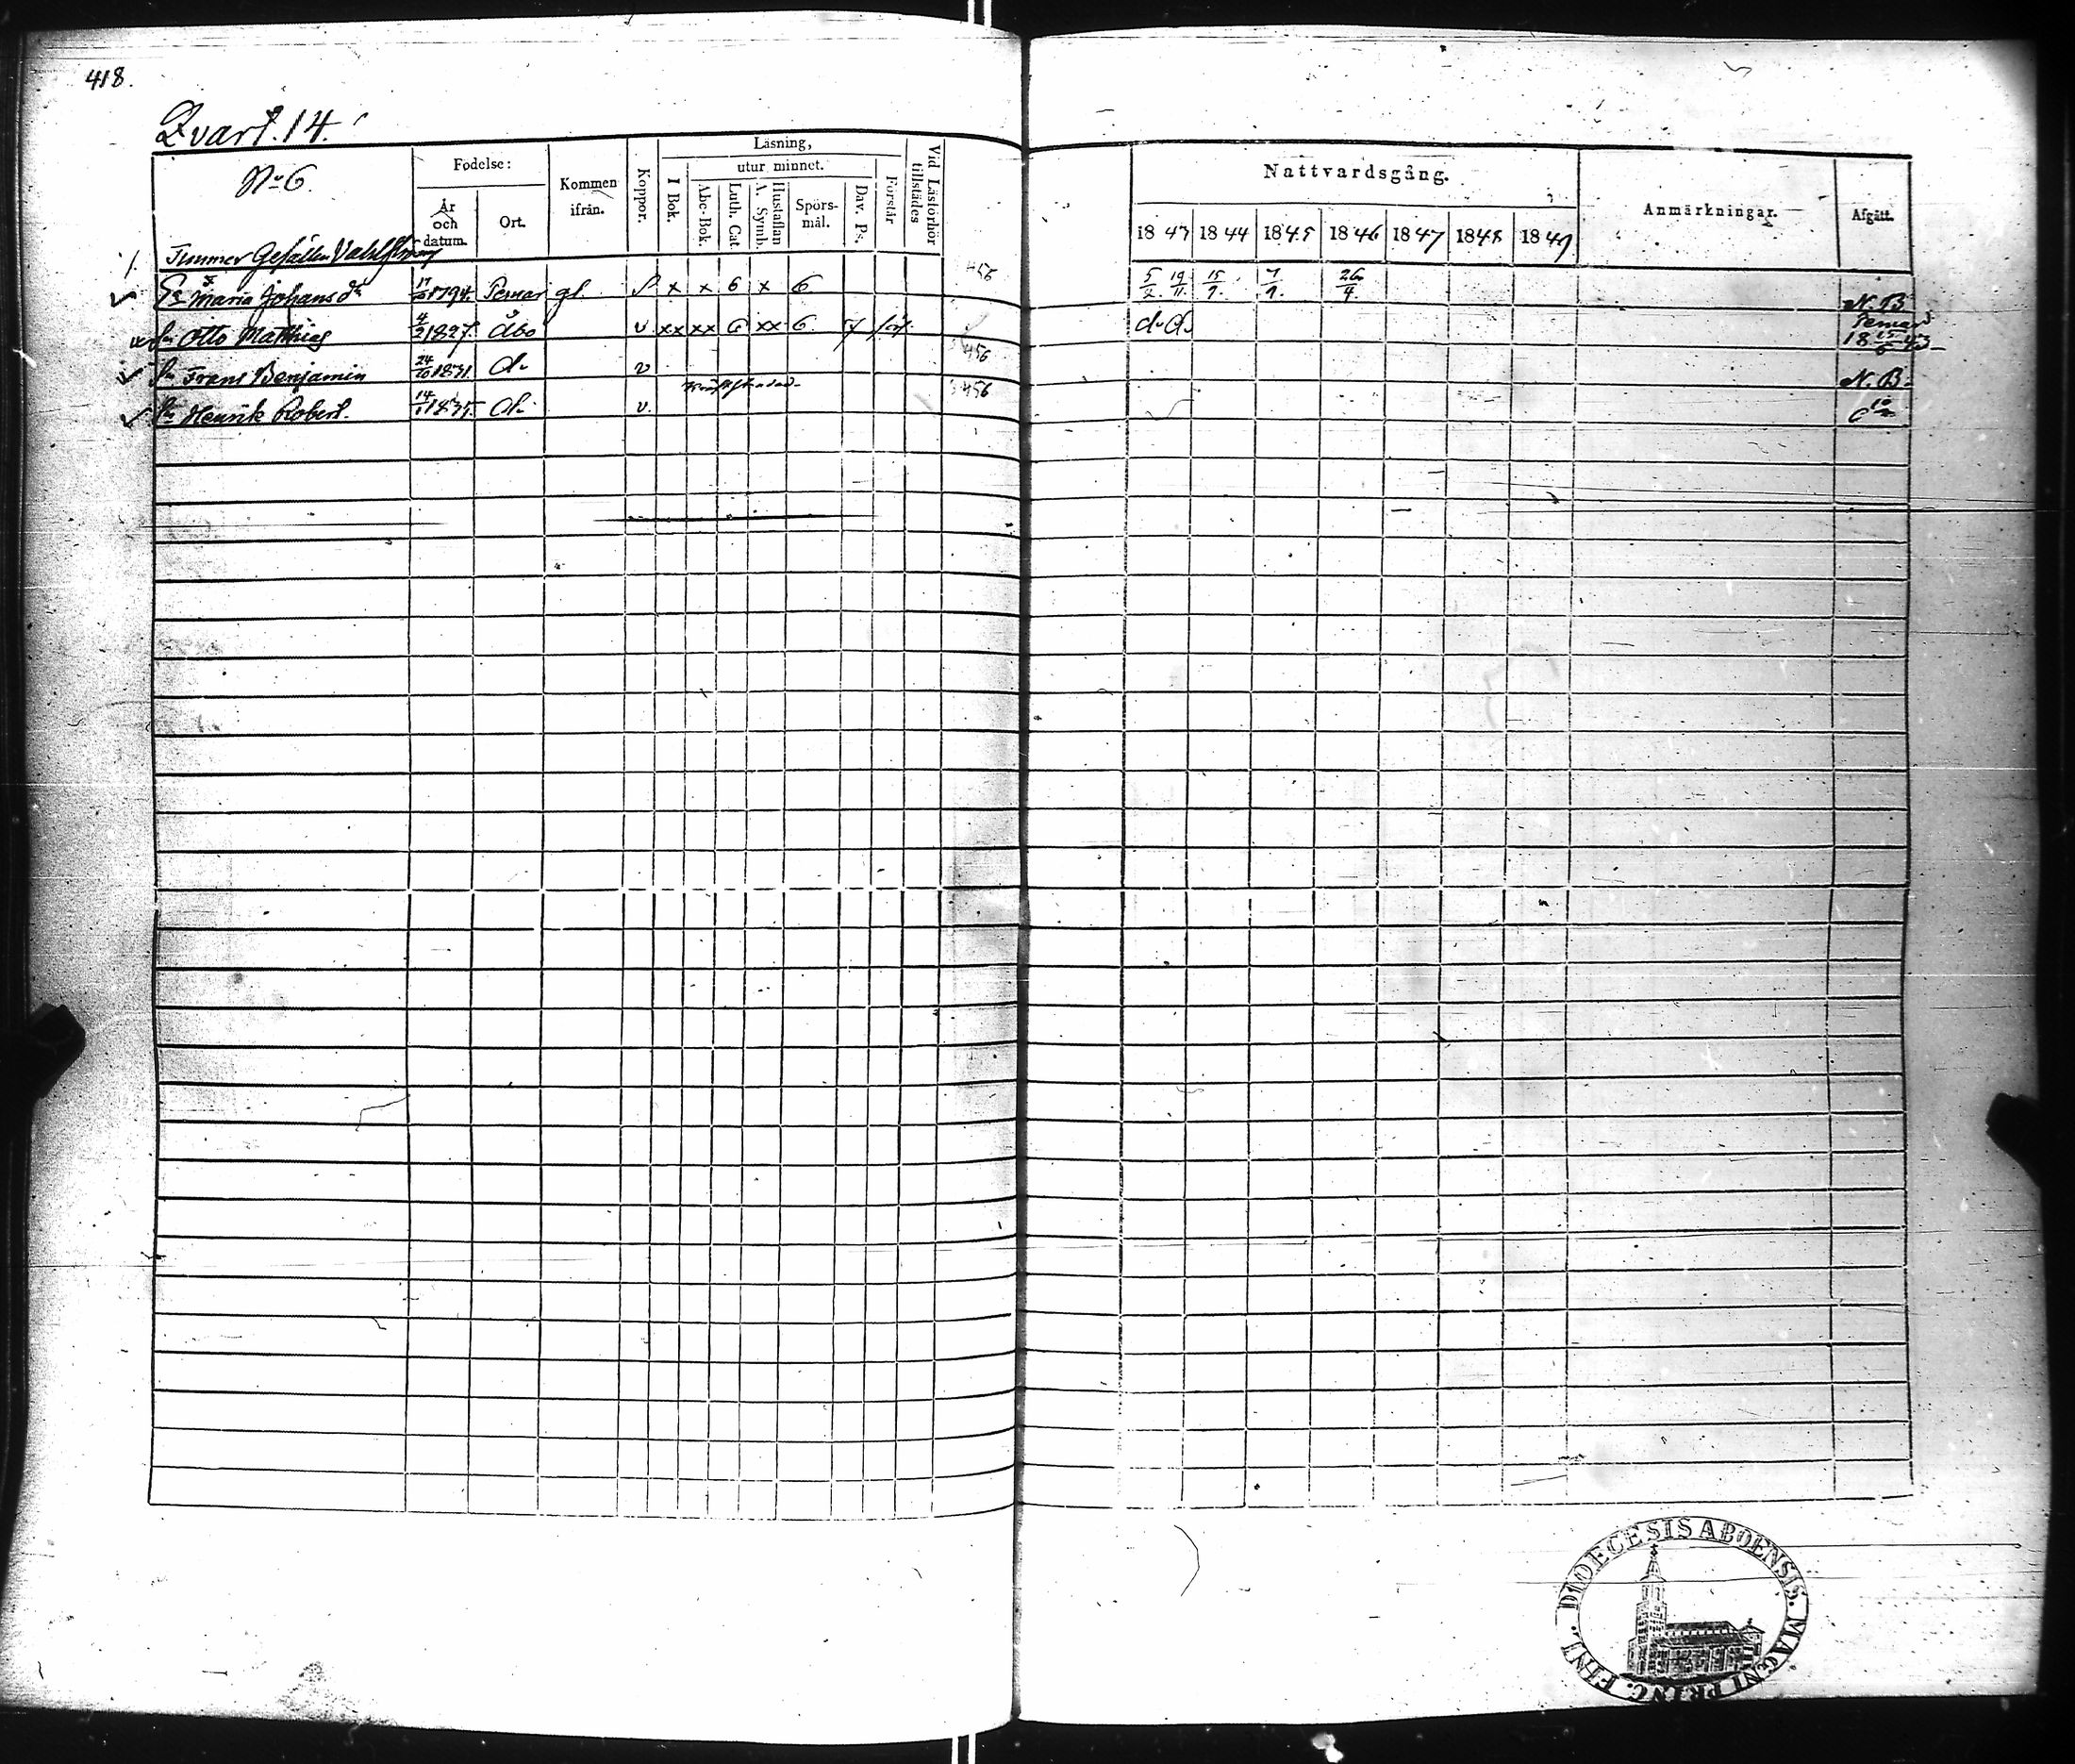 418.
Qvart. 14.
No 6.
Födelse:
År och datum.
Ort.
Kommen ifrån.
Koppor.
Läsning,
I Bok.
utur minnet.
Abc-Bok.
Luth. Cat.
Hustaflan A. Symb.
Spörsmål.
Dav. Ps.
Förstår
Vid Läsförhör tillstädes
Nattvardsgång.
1843 1844 1845 1846 1847 1848 1849
Anmärkningar.
Afgått.
1. Timmer Gesällen
Maria Johans dr 17 1794. Pemar gl. x x 6 x 6 456 5/2. 19/11. 15/9. 7/9. 26/4 N. B.
Otto Matthias 4/2 1827. Åbo v xx xx 6 xx 6 d. d. Pemar 18 43
Frans Benjamin 24/10 1831 d. v 456 N. B.
Henrik Robert. 14/1 1835 d. v. 456
DIOECESIS ABOENSIS. MAGNI PRINC. FINL.